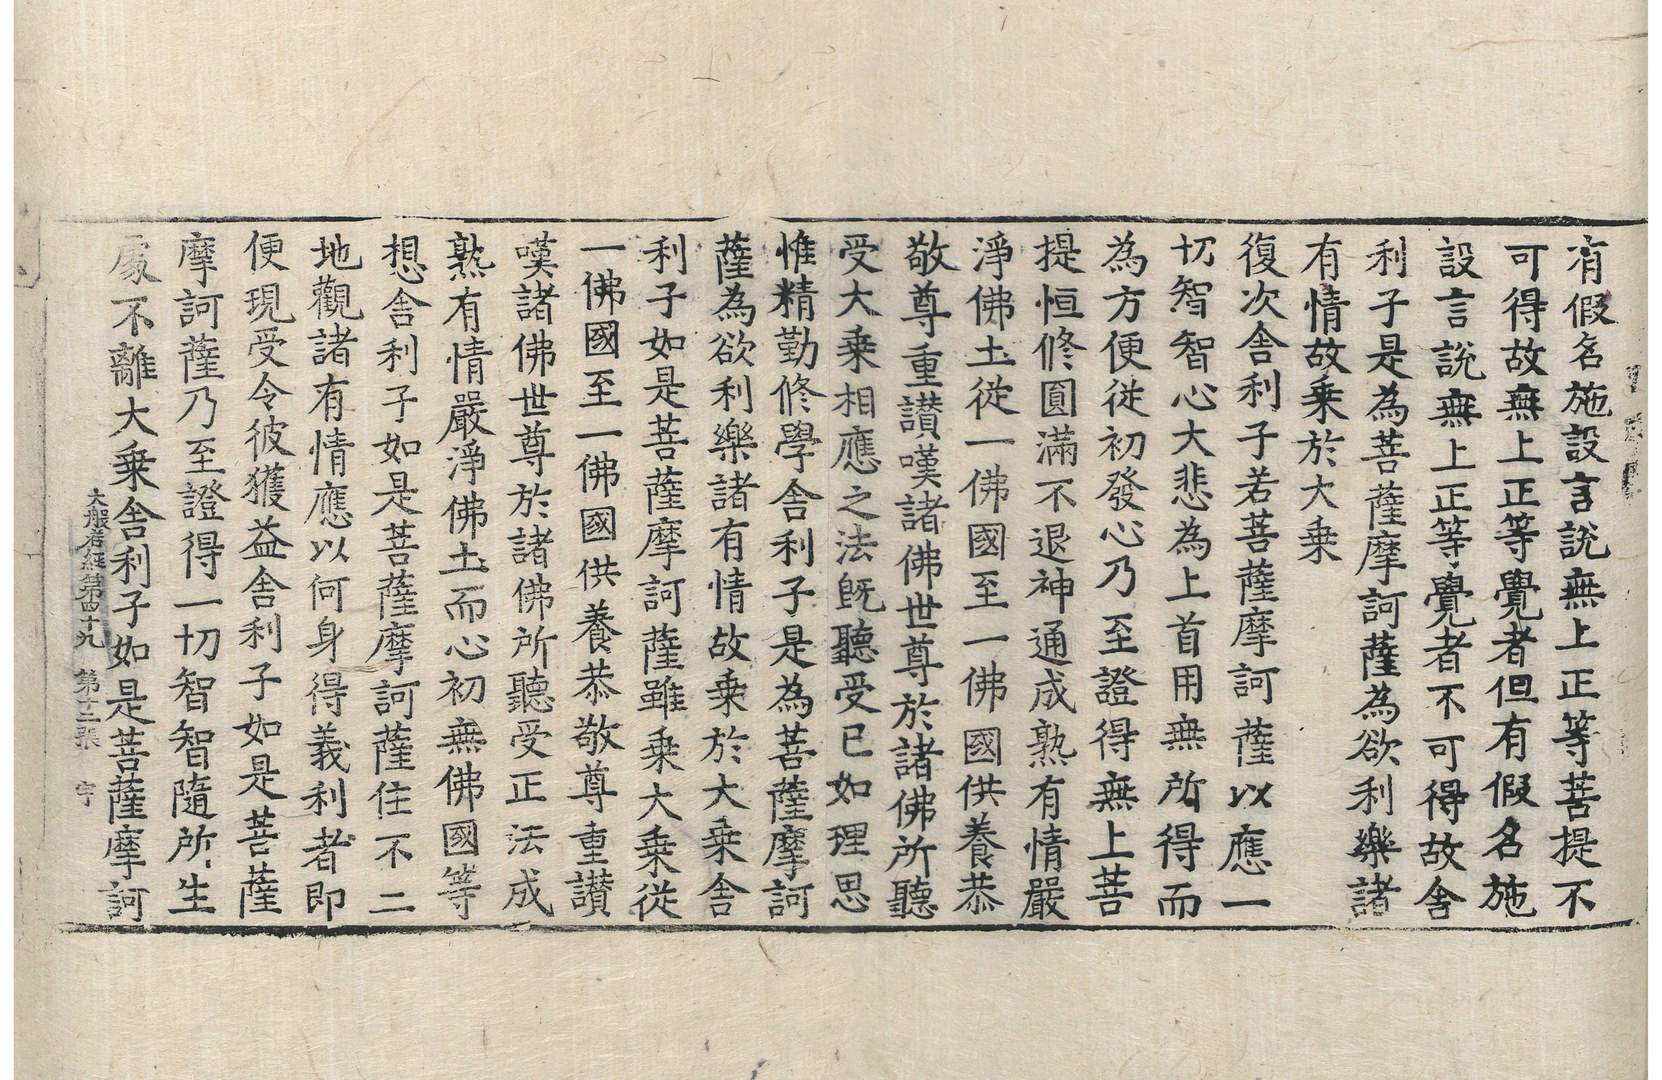 有假名施設言說無上正等菩提不
可得故無上正等覺者但有假名施
設言說無上正等覺者不可得故舍
利子是為菩薩摩訶薩為欲利樂諸
有情故乗於大乗
復次舍利子若菩薩摩訶薩以應一
切智智心大悲為上首用無所得而
為方便從初發心乃至證得無上菩
提恒修圓滿不退神通成熟有情嚴
淨佛土從一佛國至一佛國供養恭
敬尊重讃嘆諸佛世尊於諸佛所聽
受大乗相應之法既聽受已如理思
惟精勤修學舍利子是為菩薩摩訶
薩為欲利樂諸有情故乗於大乗舍
利子如是菩薩摩訶薩雖乗大乗從
一佛國至一佛國供養恭敬尊重讃
嘆諸佛世尊於諸佛所聽受正法成
熟有情嚴淨佛土而心初無佛國等
想舍利子如是菩薩摩訶薩住不二
地觀諸有情應以何身得義利者即
便現受令彼獲益舍利子如是菩薩
摩訶薩乃至證得一切智智隨所生
處不離大乗舍利子如是菩薩摩訶
大般若經第四十九 第十二張 宇